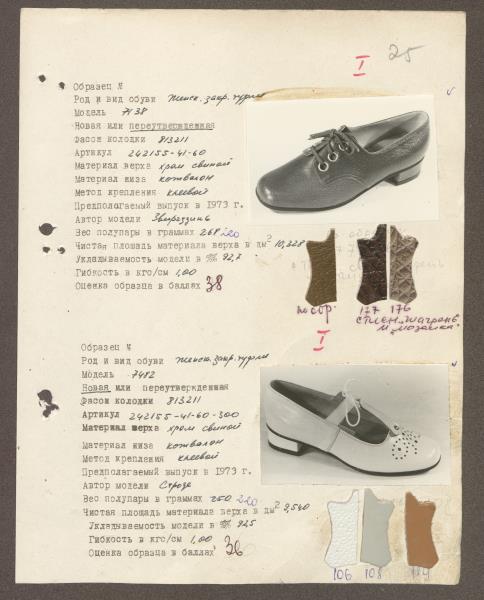 I 25
Образец №
Род и вид обуви женск. закр. туфли
Модель 7438
Новая или переутвержденная
Фасон колодки 813211
Артикул 242155-41-60
Материал верха хром свиной
Материал низа кожволон
Метод крепления клеевой
Предполагаемый выпуск в 1973 г.
Автор модели
Вес полупары в граммах 268 220
Чистая площадь материала верха в дм² 10,328
Укладываемость модели в % 92,7
Гибкость в кгс/см 1,00
Оценка образца в баллах 38
177 176
I
Образец №
Род и вид обуви женск. закр. туфли
Модель 7482
Новая или переутвержденная
Фасон колодки 813211
Артикул 242155-41-60-300
Материал верха хром свиной
Материал низа кожволон
Метод крепления клеевой
Предполагаемый выпуск в 1973 г.
Автор модели
Вес полупары в граммах 250 220
Чистая площадь материала верха в дм² 9,540
Укладываемость модели в % 92,5
Гибкость в кгс/см 1,00
Оценка образца в баллах 36
106 108